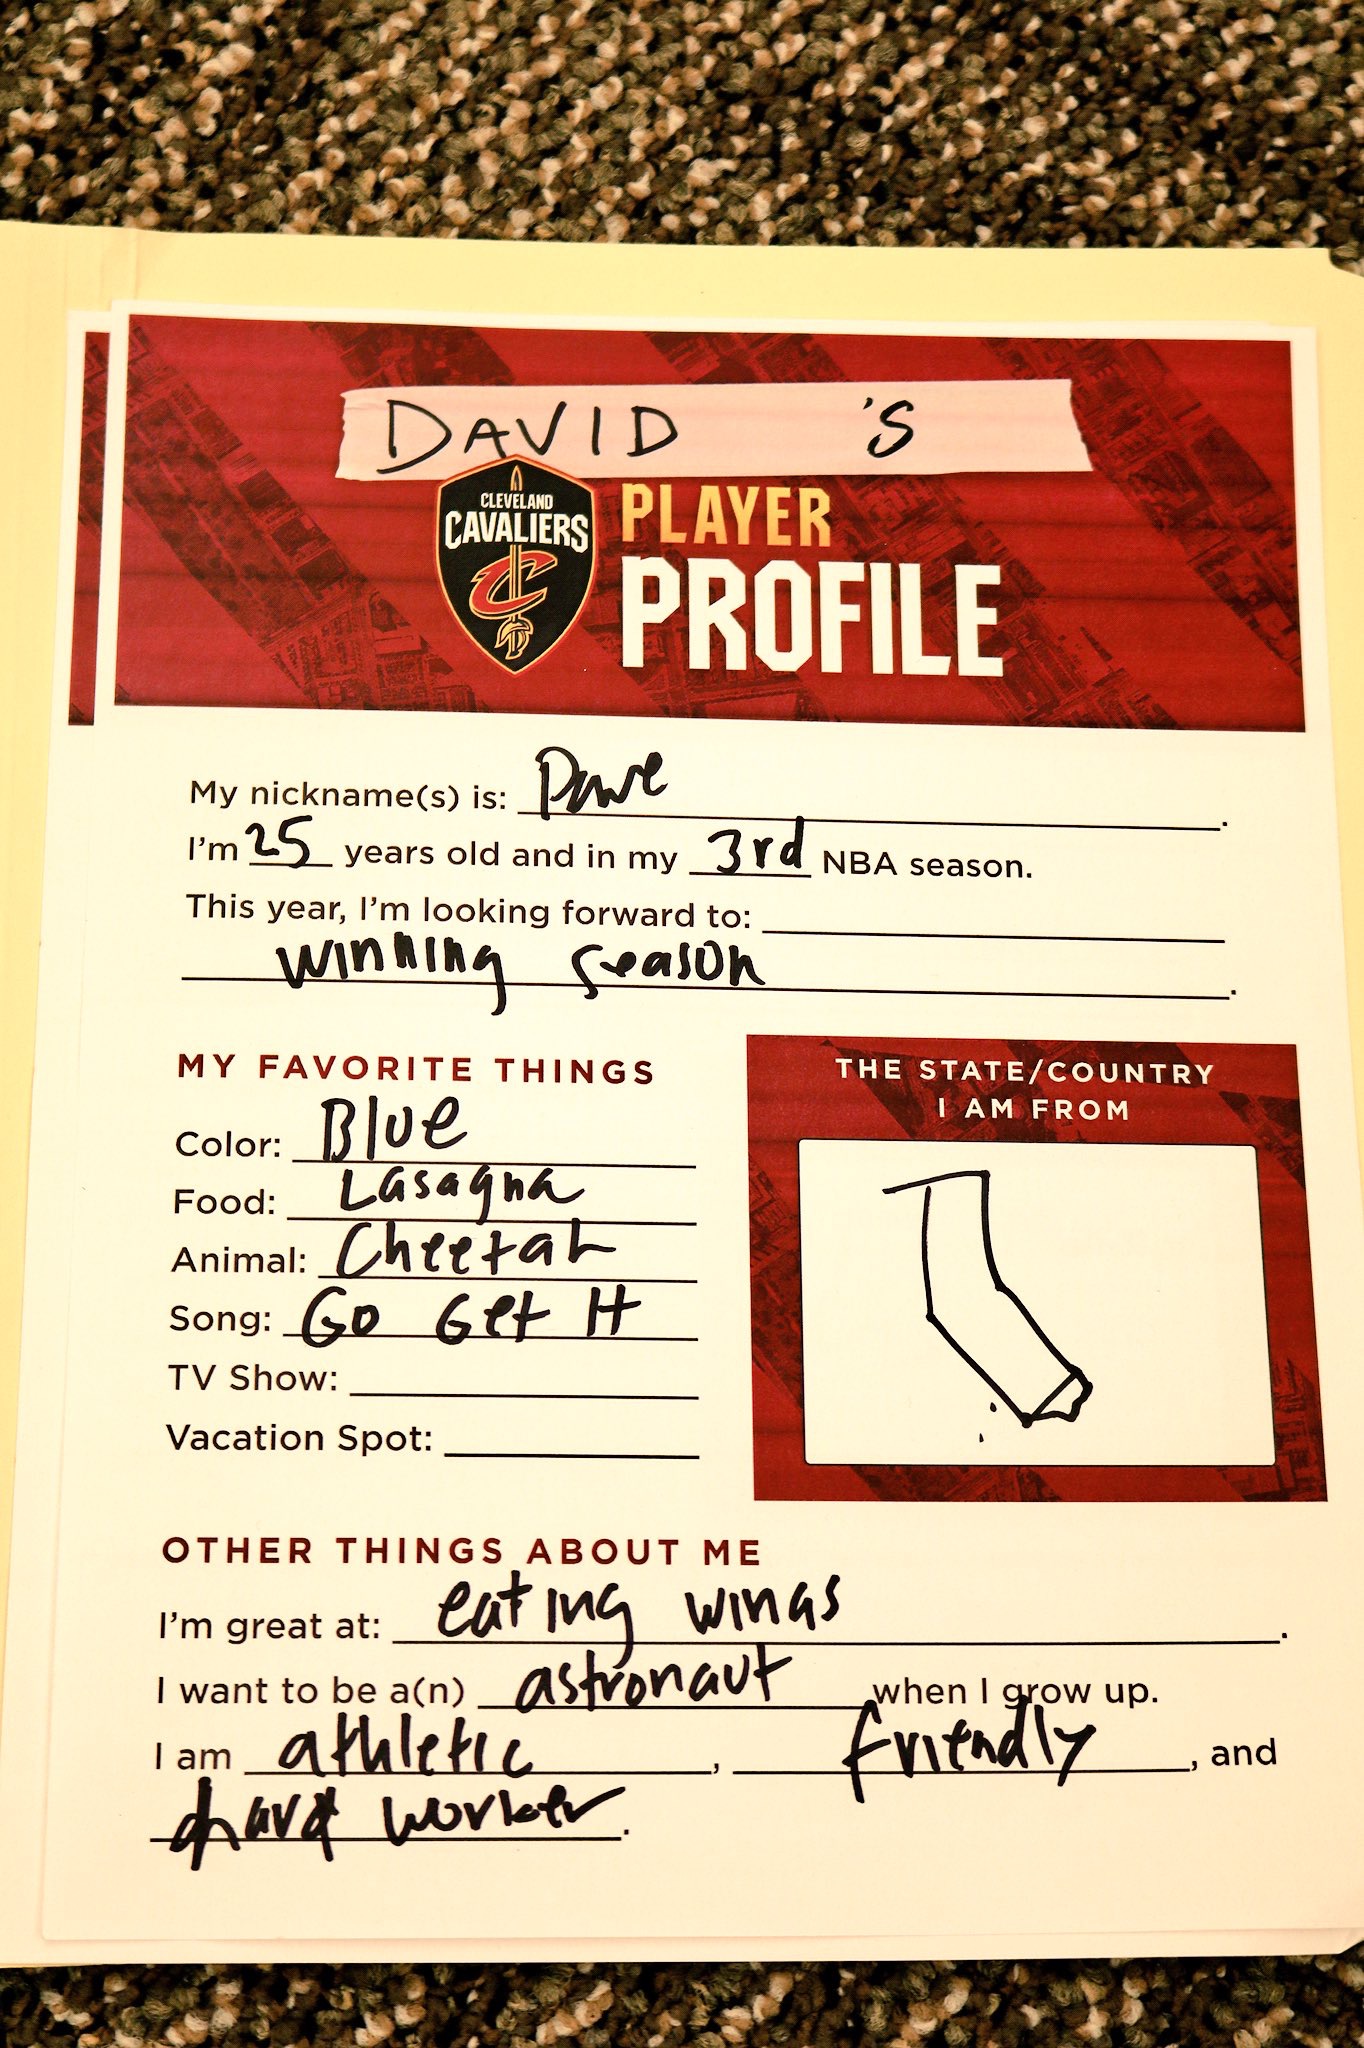 DAVID 'S
CLEVELAND
CAVALIERS
C
PLAYER
PROFILE
My nickname(s) is: Dave.
I'm 25 years old and in my 3rd NBA season.
This year, I'm looking forward to:
winning season.
MY FAVORITE THINGS
Color: Blue
Food: Lasagna
Animal: Cheetah
Song: Go Get It
TV Show:
Vacation Spot:
THE STATE/COUNTRY
I AM FROM
OTHER THINGS ABOUT ME
I'm great at: eating wings.
I want to be a(n) astronaut when I grow up.
I am athletic, friendly, and
hard worker.